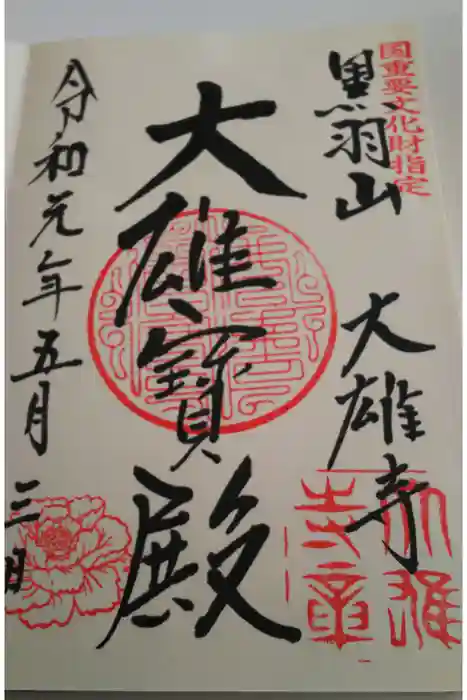 国重要文化財指定
黒羽山
大雄寺
大雄寶殿
令和元年五月三日
大雄
寺章